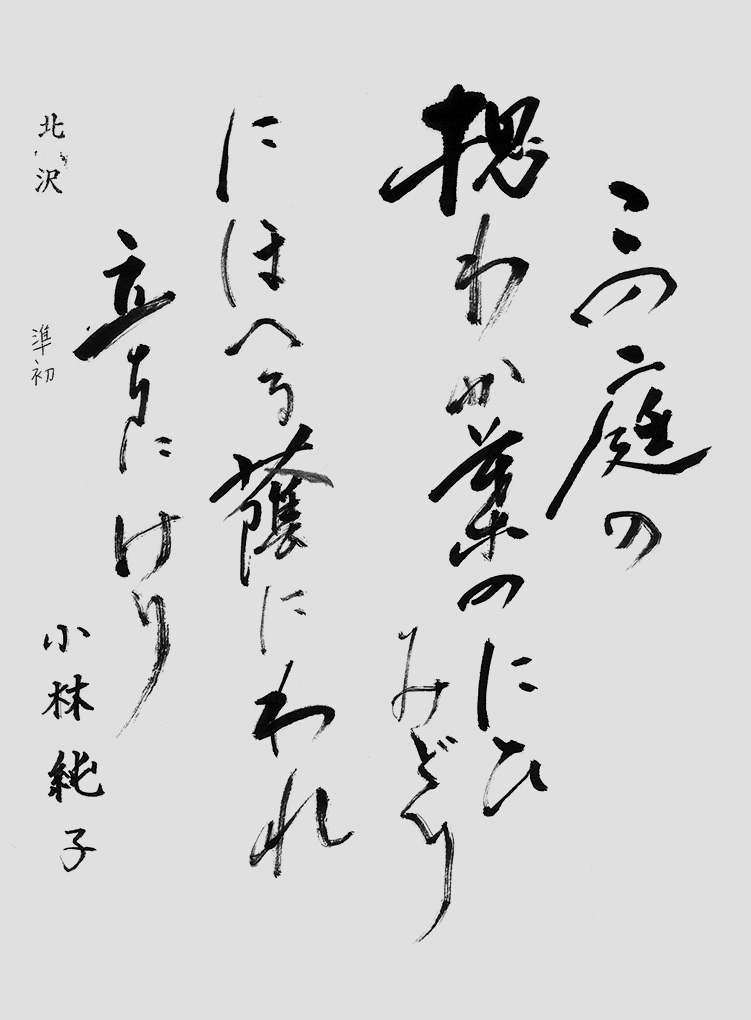 この庭の
槐わか葉のにひ
みどり
にほへる蔭にわれ
立ちにけり
小林純子
準初
北沢